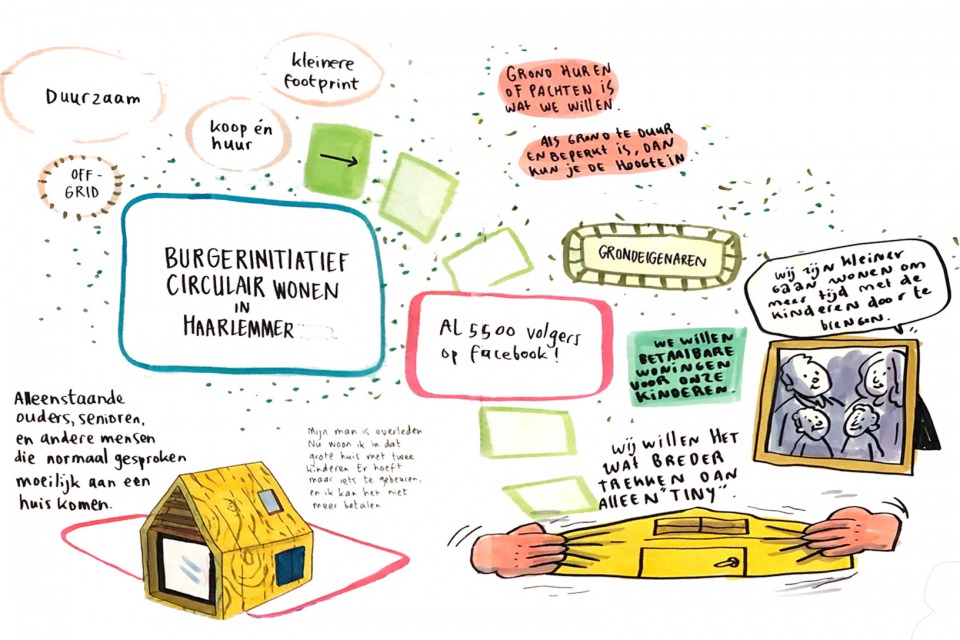 Duurzaam
kleinere
footprint
koop én
huur
OFF-
GRID
GROND HUREN
OF PACHTEN IS
WAT WE WILLEN.
ALS GROND TE DUUR
EN BEPERKT IS, DAN
KUN JE DE HOOGTE IN
BURGERINITIATIEF
CIRCULAIR WONEN
IN
HAARLEMMER
GRONDEIGENAREN
Wij zijn kleiner
gaan wonen om
meer tijd met de
kinderen door te
brengen.
AL 5500 volgers
op facebook!
WE WILLEN
BETAALBARE
WONINGEN
VOOR ONZE
KINDEREN.
Alleenstaande
ouders, senioren,
en andere mensen
die normaal gesproken
moeilijk aan een
huis komen.
Mijn man is overleden
Nu woon ik in dat
grote huis met twee
kinderen. Er hoeft
maar iets te gebeuren,
en ik kan het niet
meer betalen
Wij WILLEN HET
WAT BREDER
TREKKEN DAN
ALLEEN "TINY".